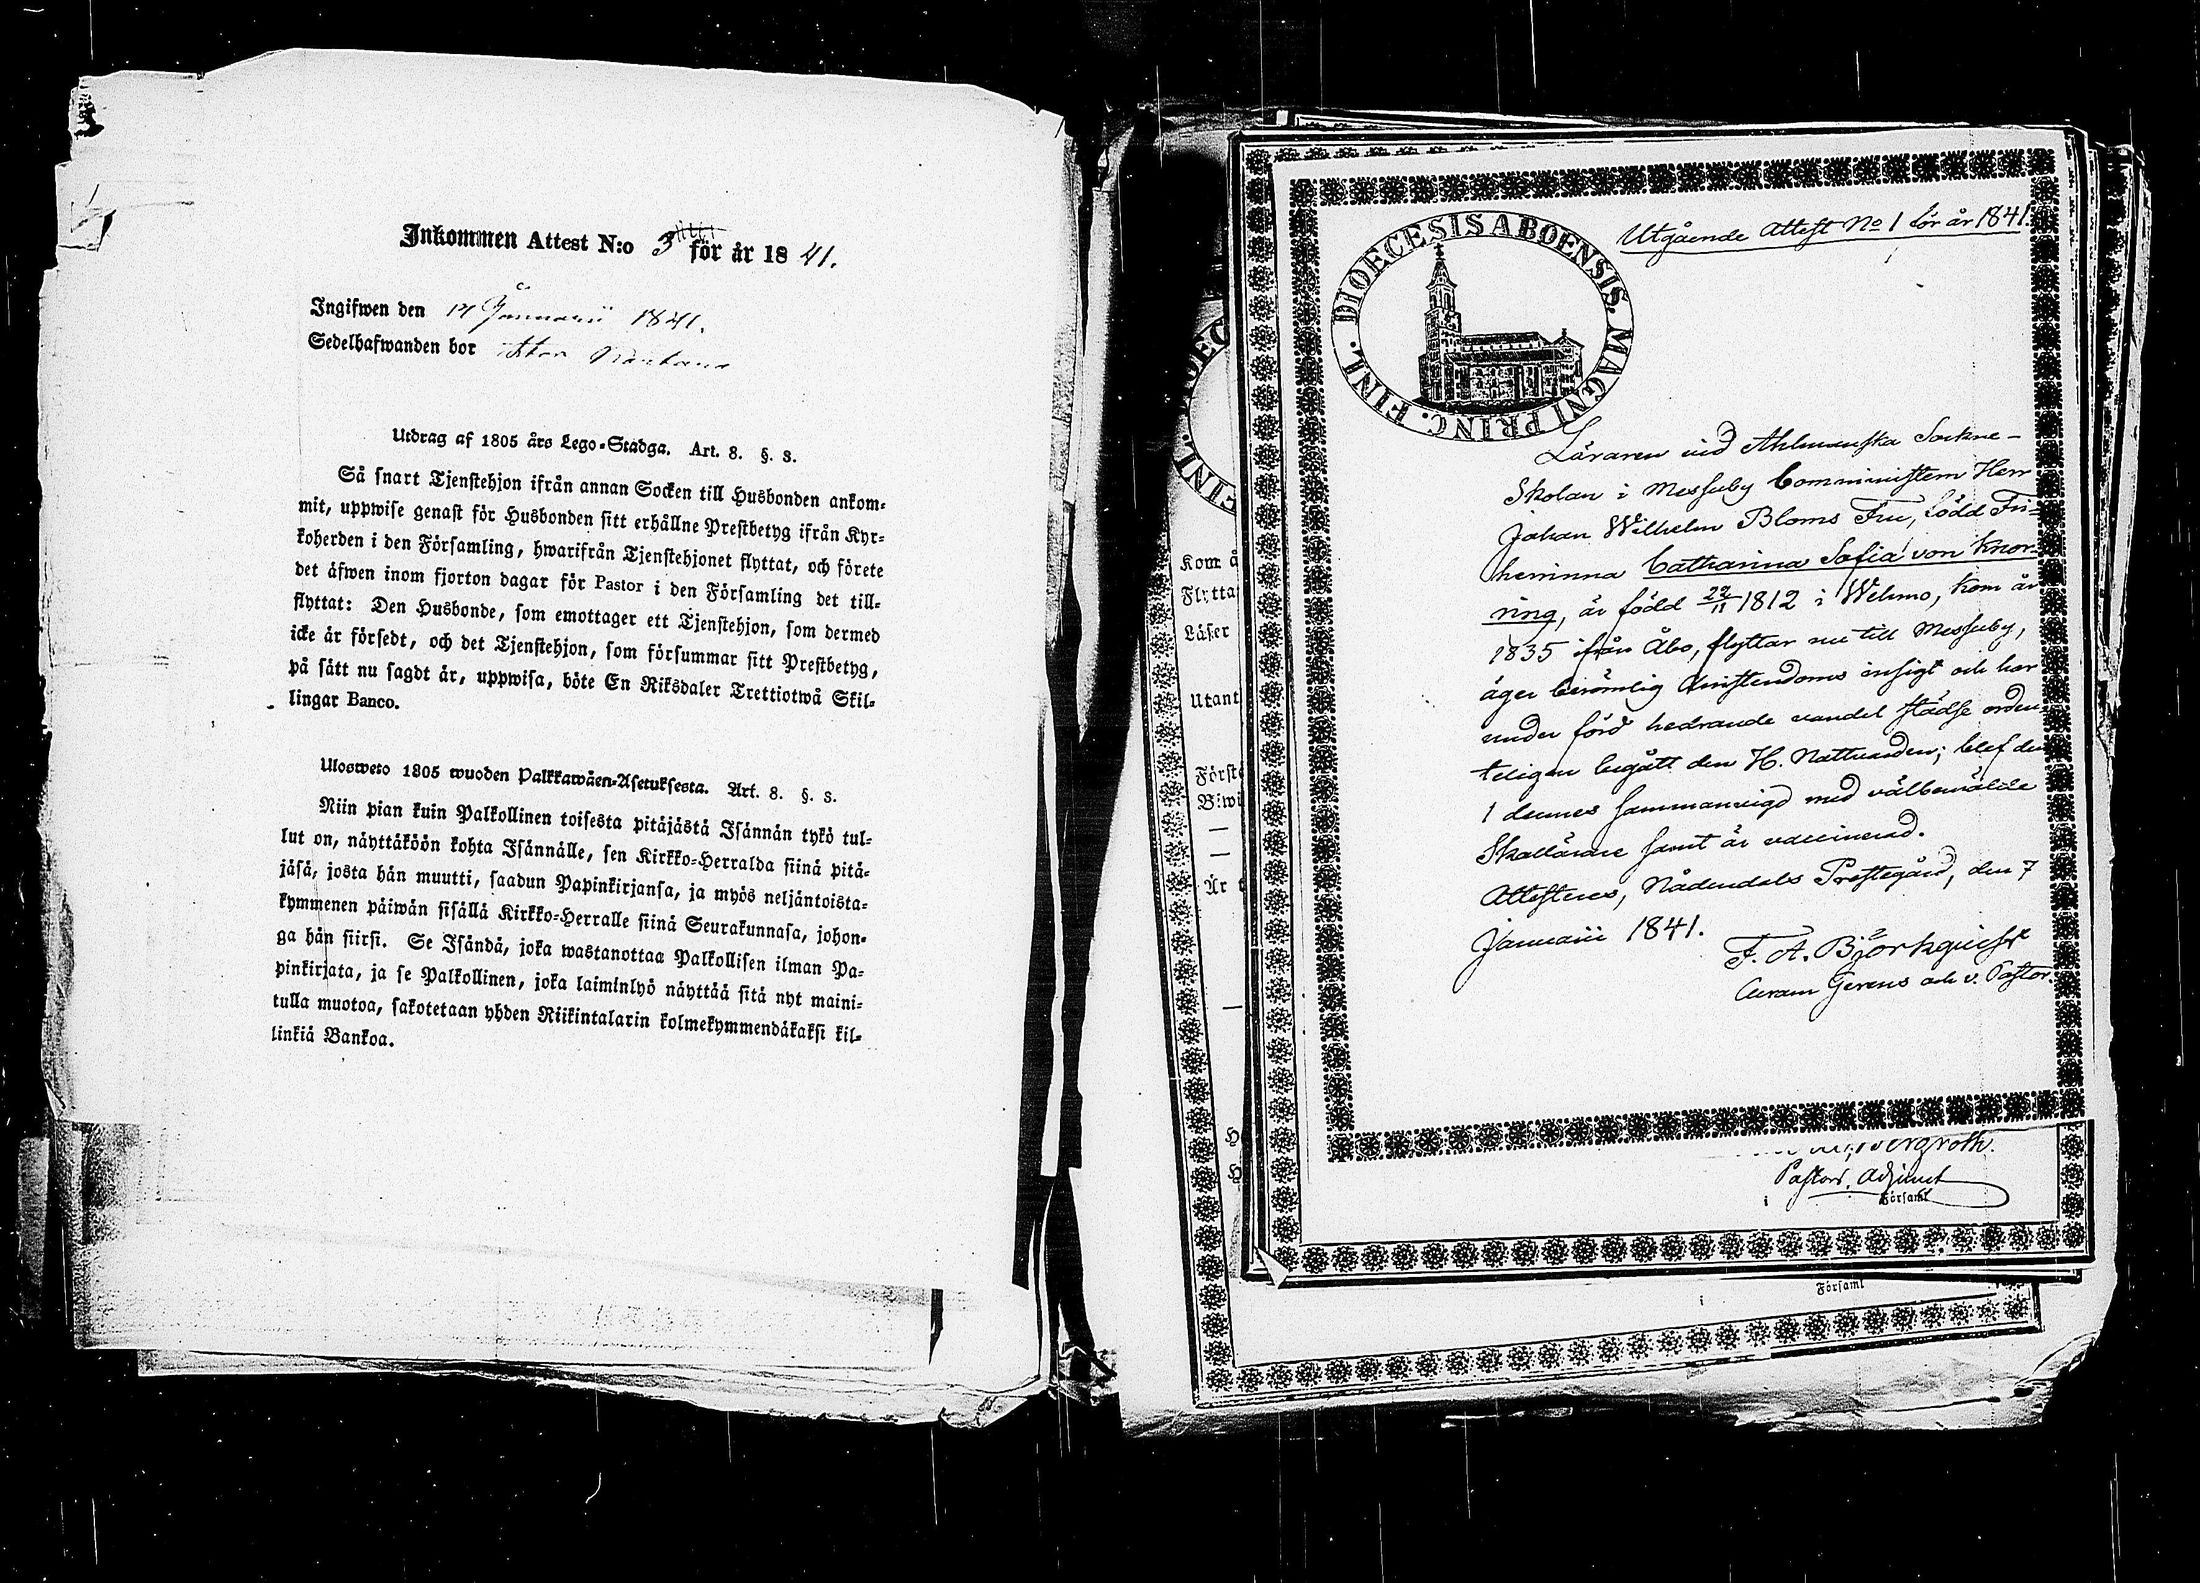 Inkommen Attest N:o 3 för år 1841.
Ingifwen den 14 Januarii 1841.
Sedelhafwanden bor
Utdrag af 1805 års Lego-Stadga. Art. 8. §. 3.
Så snart Tjenstehjon ifrån annan Socken till Husbonden ankom-
mit, uppwise genast för Husbonden sitt erhållne Prestbetyg ifrån Kyr-
koherden i den Församling, hwarifrån Tjenstehjonet flyttat, och förete
det äfwen inom fjorton dagar för Pastor i den Församling det till-
flyttat: Den Husbonde, som emottager ett Tjenstehjon, som dermed
icke är försedt, och det Tjenstehjon, som försummar sitt Prestbetyg,
på sätt nu sagdt är, uppwisa, böte En Riksdaler Trettiotwå Skil-
lingar Banco.
Ulosweto 1805 wuoden Palkkawäen-Asetuksesta. Art. 8. §. 3.
Niin pian kuin Palkollinen toisesta pitäjästä Isännän tykö tul-
lut on, näyttäköön kohta Isännälle, sen Kirkko-Herralda siinä pitä-
jäsä, josta hän muutti, saadun Papinkirjansa, ja myös neljäntoista-
kymmenen päiwän sisällä Kirkko-Herralle siinä Seurakunnasa, johon-
ga hän siirsi. Se Isändä, joka wastanottaa Palkollisen ilman Pa-
pinkirjata, ja se Palkollinen, joka laiminlyö näyttää sitä nyt maini-
tulla muotoa, sakotetaan yhden Riikintalarin kolmekymmendäkaksi kil-
linkiä Bankoa.
Utgående Attest No 1 för år 1841.
DIOECESIS ABOENSIS. MAGNI PRINC. FINL.
Läraren vid Ahlmanska Sockne-
Skolan i Messuby Comministern Herr
Johan Wilhelm Bloms Fru, född Fri-
herrinna Catharina Sofia von Knor-
ring, är född 22/11 1812 i Wehmo, kom år
1835 ifrån Åbo, flyttar nu till Messuby,
äger berömlig Christendoms insigt och har
under förd hedrande vandel städse orden-
teligen begått den H. Nattvarden; blef den
1 dennes sammanvigd med välbemälde
Skollärare samt är vaccinerad.
Attesteres, Nådendals Prestegård, den 7
Januarii 1841.
F. A. Björkqvist
Curam Gerens och v. Pastor.
Kom å
Flytta
Läser
Utant
Först
Är
ergroth.
Pastors Adjunct
i Församl
i Församl